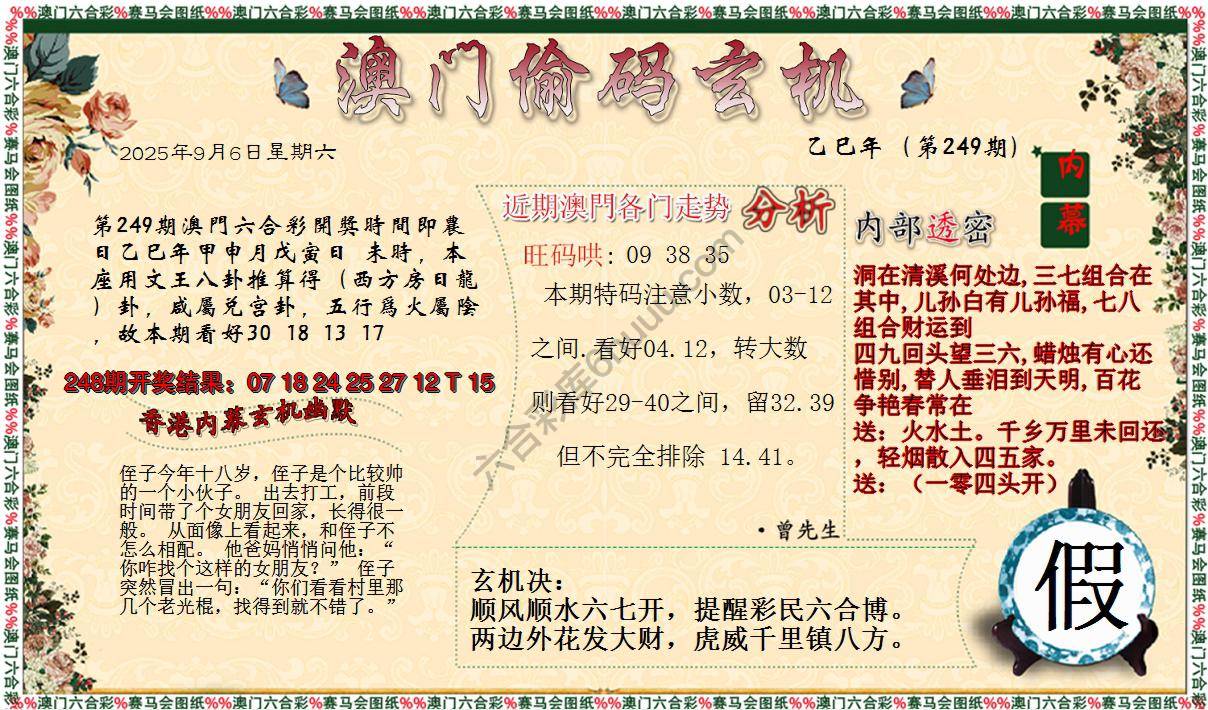 %%澳门六合彩%赛马会图纸%%澳门六合彩%赛马会图纸%%澳门六合彩%赛马会图纸%%澳门六合彩%赛马会图纸%%澳门六合彩%赛马会图纸%%澳门六合彩%赛马会图纸%%
澳门偷码玄机
2025年9月6日星期六
乙巳年（第249期）
内幕
第249期澳門六合彩開獎時間即農
日乙巳年甲申月戊寅日 未時，本
座用文王八卦推算得（西方房日龍
）卦，咸屬兑宫卦，五行爲火屬陰
，故本期看好30 18 13 17
248期开奖结果：07 18 24 25 27 12 T 15
香港内幕玄机幽默
侄子今年十八岁，侄子是个比较帅
的一个小伙子。 出去打工，前段
时间带了个女朋友回家，长得很一
般。 从面像上看起来，和侄子不
怎么相配。 他爸妈悄悄问他：“
你咋找个这样的女朋友？” 侄子
突然冒出一句：“你们看看村里那
几个老光棍，找得到就不错了。”
近期澳門各门走势 分析
旺码哄: 09 38 35
本期特码注意小数，03-12
之间.看好04.12，转大数
则看好29-40之间，留32.39
但不完全排除 14.41。
·曾先生
内部透密
洞在清溪何处边,三七组合在
其中,儿孙自有儿孙福,七八
组合财运到
四九回头望三六,蜡烛有心还
惜别,替人垂泪到天明,百花
争艳春常在
送：火水土。千乡万里未回还
，轻烟散入四五家。
送：（一零四头开）
玄机决：
顺风顺水六七开，提醒彩民六合博。
两边外花发大财，虎威千里镇八方。
假
六合彩库6huuu.com
%%澳门六合彩%赛马会图纸%%澳门六合彩%赛马会图纸%%澳门六合彩%赛马会图纸%%澳门六合彩%赛马会图纸%%澳门六合彩%赛马会图纸%%澳门六合彩%赛马会图纸%%